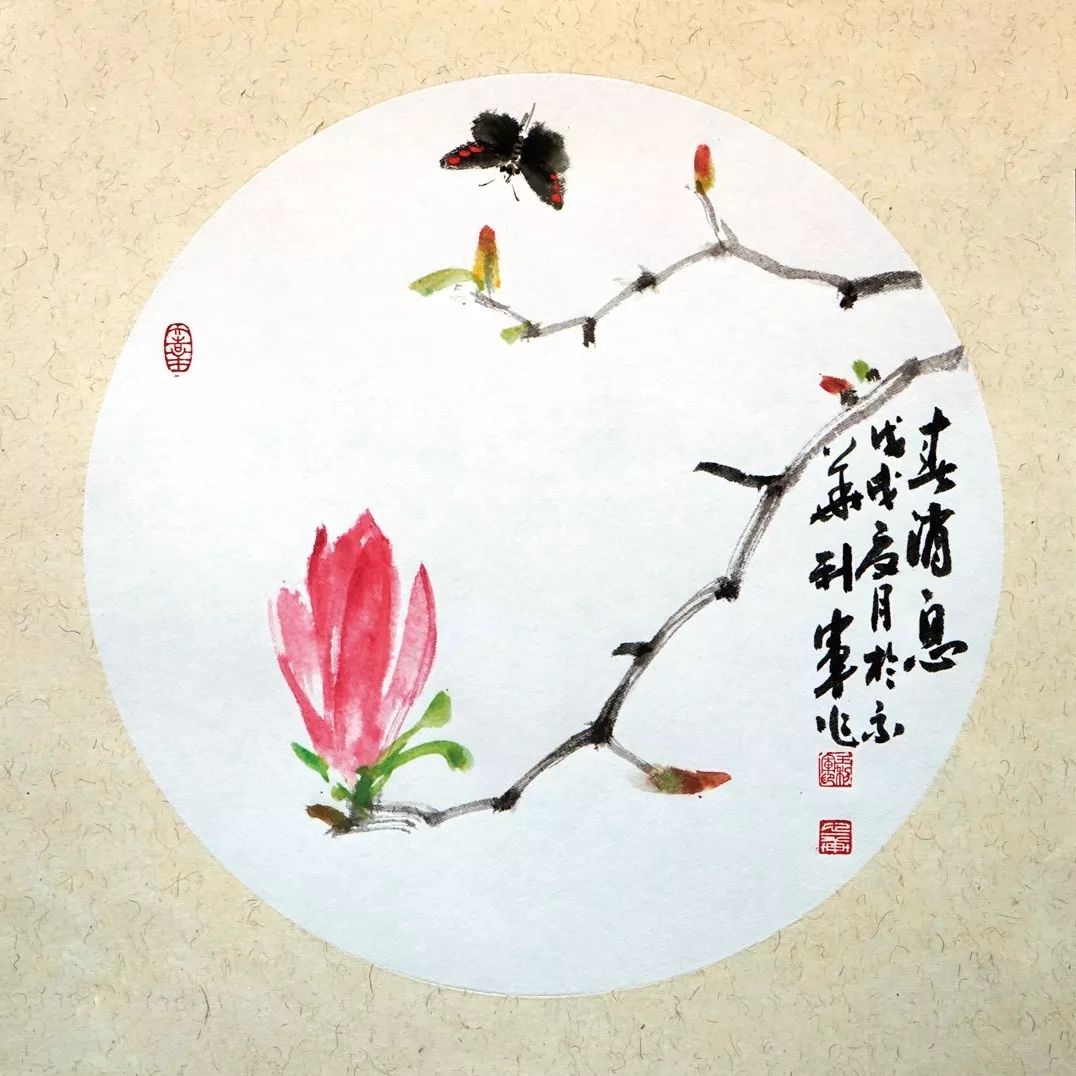 春消息
戊戌夏月於京
華利軍作